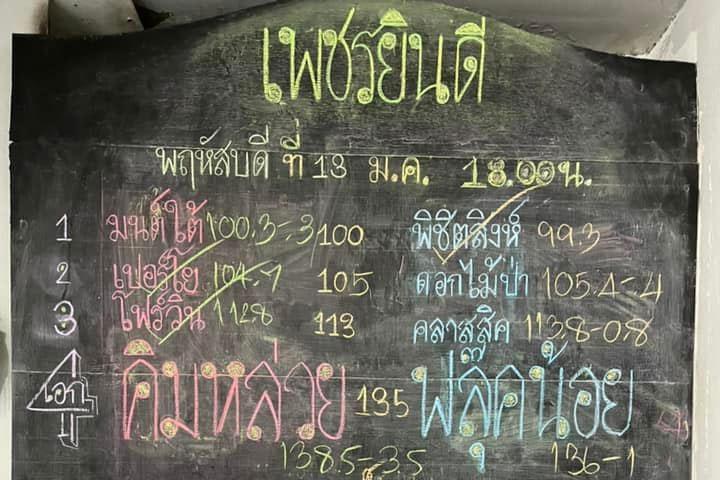 เพชรยินดี
พฤหัสบดี ที่ 13 ม.ค. 18.00น.
1 มนต์ใต้ 100.3-.3 100 พิชิตสิงห์ 99.3
2 เปอร์โย 104.7 105 ดอกไม้ป่า 105.4-.4
3 โฟร์วิน 112.8 113 คลาสสิค 113.8-0.8
เอก คิมหล่วย 135 ฟลุ๊คน้อย
138.5-3.5 136-1